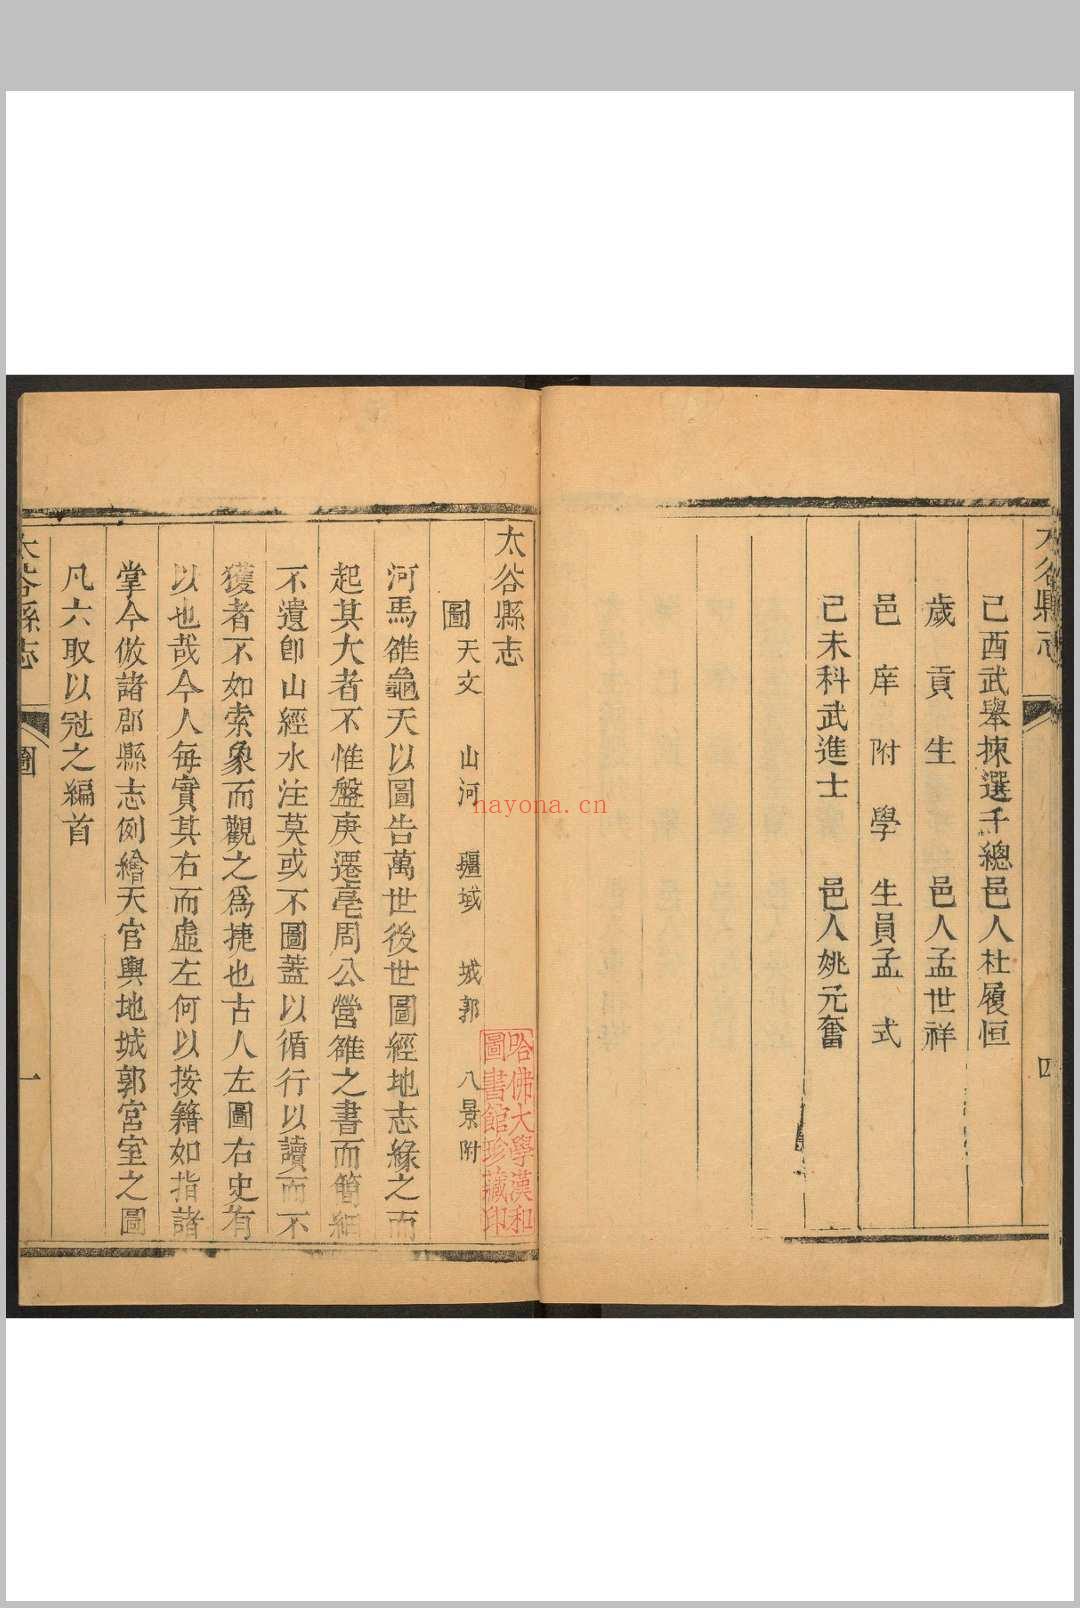 太谷縣志
四
己酉武舉揀選千總邑人杜履恒
歲貢生邑人孟世祥
邑庠附學生員孟式
己未科武進士邑人姚元奮
太谷縣志
圖 天文 山河 疆域 城郭 八景附
河馬雒龜天以圖告萬世後世圖經地志緣之而
起其大者不惟盤庚遷亳周公營雒之書而簡細
不遺卽山經水注莫或不圖蓋以循行以讀而不
獲者不如索象而觀之爲捷也古人左圖右史有
以也哉今人每實其右而虛左何以按籍如指諸
掌今倣諸郡縣志例繪天官輿地城郭宮室之圖
凡六取以冠之編首
太谷縣志
圖
一
哈佛大學漢和
圖書館珍藏印
nayona.cn